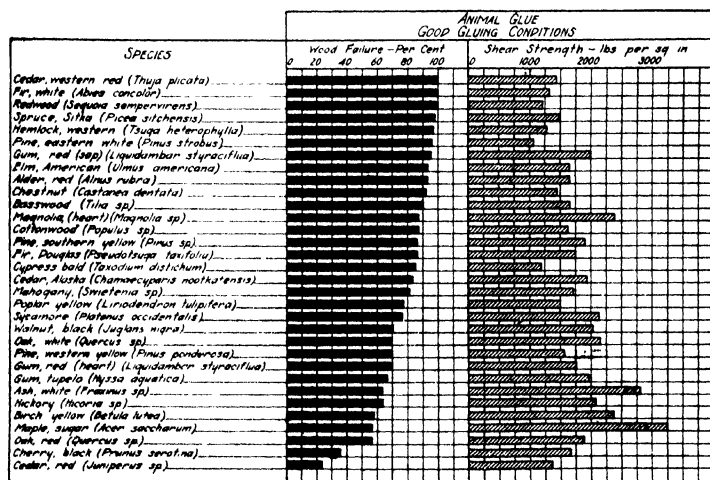 ANIMAL GLUE
GOOD GLUING CONDITIONS
SPECIES
Wood Failure - Per Cent
Shear Strength - lbs per sq in
0 20 40 60 80 100
0 1000 2000 3000
Cedar, western red (Thuja plicata)
Fir, white (Abies concolor)
Redwood (Sequoia sempervirens)
Spruce, Sitka (Picea sitchensis)
Hemlock, western (Tsuga heterophylla)
Pine, eastern white (Pinus strobus)
Gum, red (sap) (Liquidambar styraciflua)
Elm, American (Ulmus americana)
Alder, red (Alnus rubra)
Chestnut (Castanea dentata)
Basswood (Tilia sp)
Magnolia, (heart) (Magnolia sp)
Cottonwood (Populus sp)
Pine, southern yellow (Pinus sp)
Fir, Douglas (Pseudotsuga taxifolia)
Cypress bald (Taxodium distichum)
Cedar, Alaska (Chamaecyparis nootkatensis)
Mahogany, (Swietenia sp)
Poplar yellow (Liriodendron tulipifera)
Sycamore (Platenus occidentalis)
Walnut, black (Juglans nigra)
Oak, white (Quercus sp)
Pine, western yellow (Pinus ponderosa)
Gum, red (heart) (Liquidambar styraciflua)
Gum, tupelo (Nyssa aquatica)
Ash, white (Fraxinus sp)
Hickory (Hicoria sp)
Birch yellow (Betula lutea)
Maple, sugar (Acer saccharum)
Oak, red (Quercus sp)
Cherry, black (Prunus serotina)
Cedar, red (Juniperus sp)